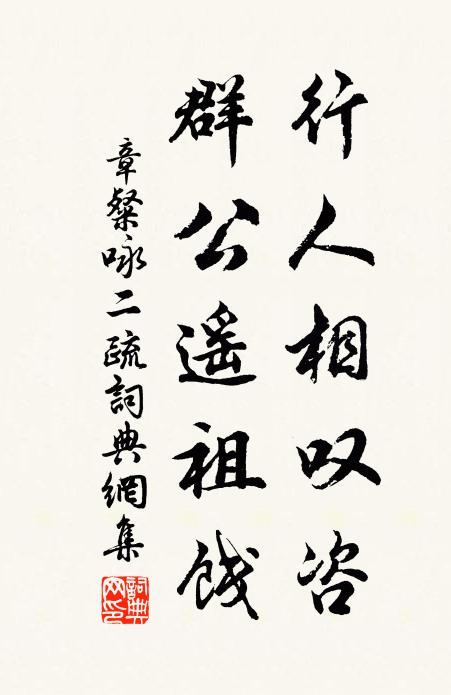 行人相叹咨
群公遥祖饯
章粲咏二疏詞典網集
詞典网印